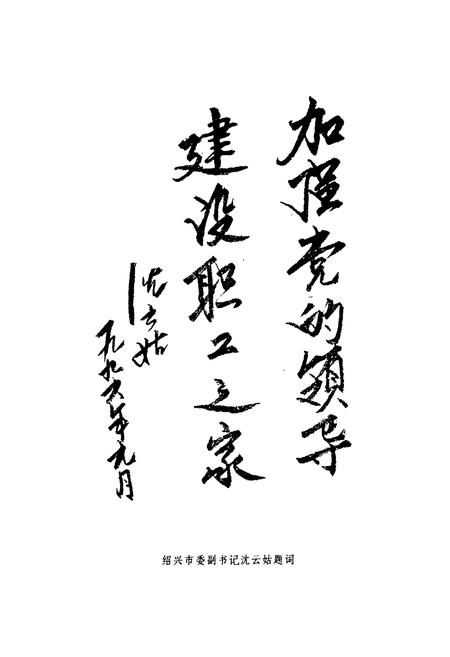 加强党的领导
建设职工之家
沈云姑
一九九六年九月
绍兴市委副书记沈云姑题词